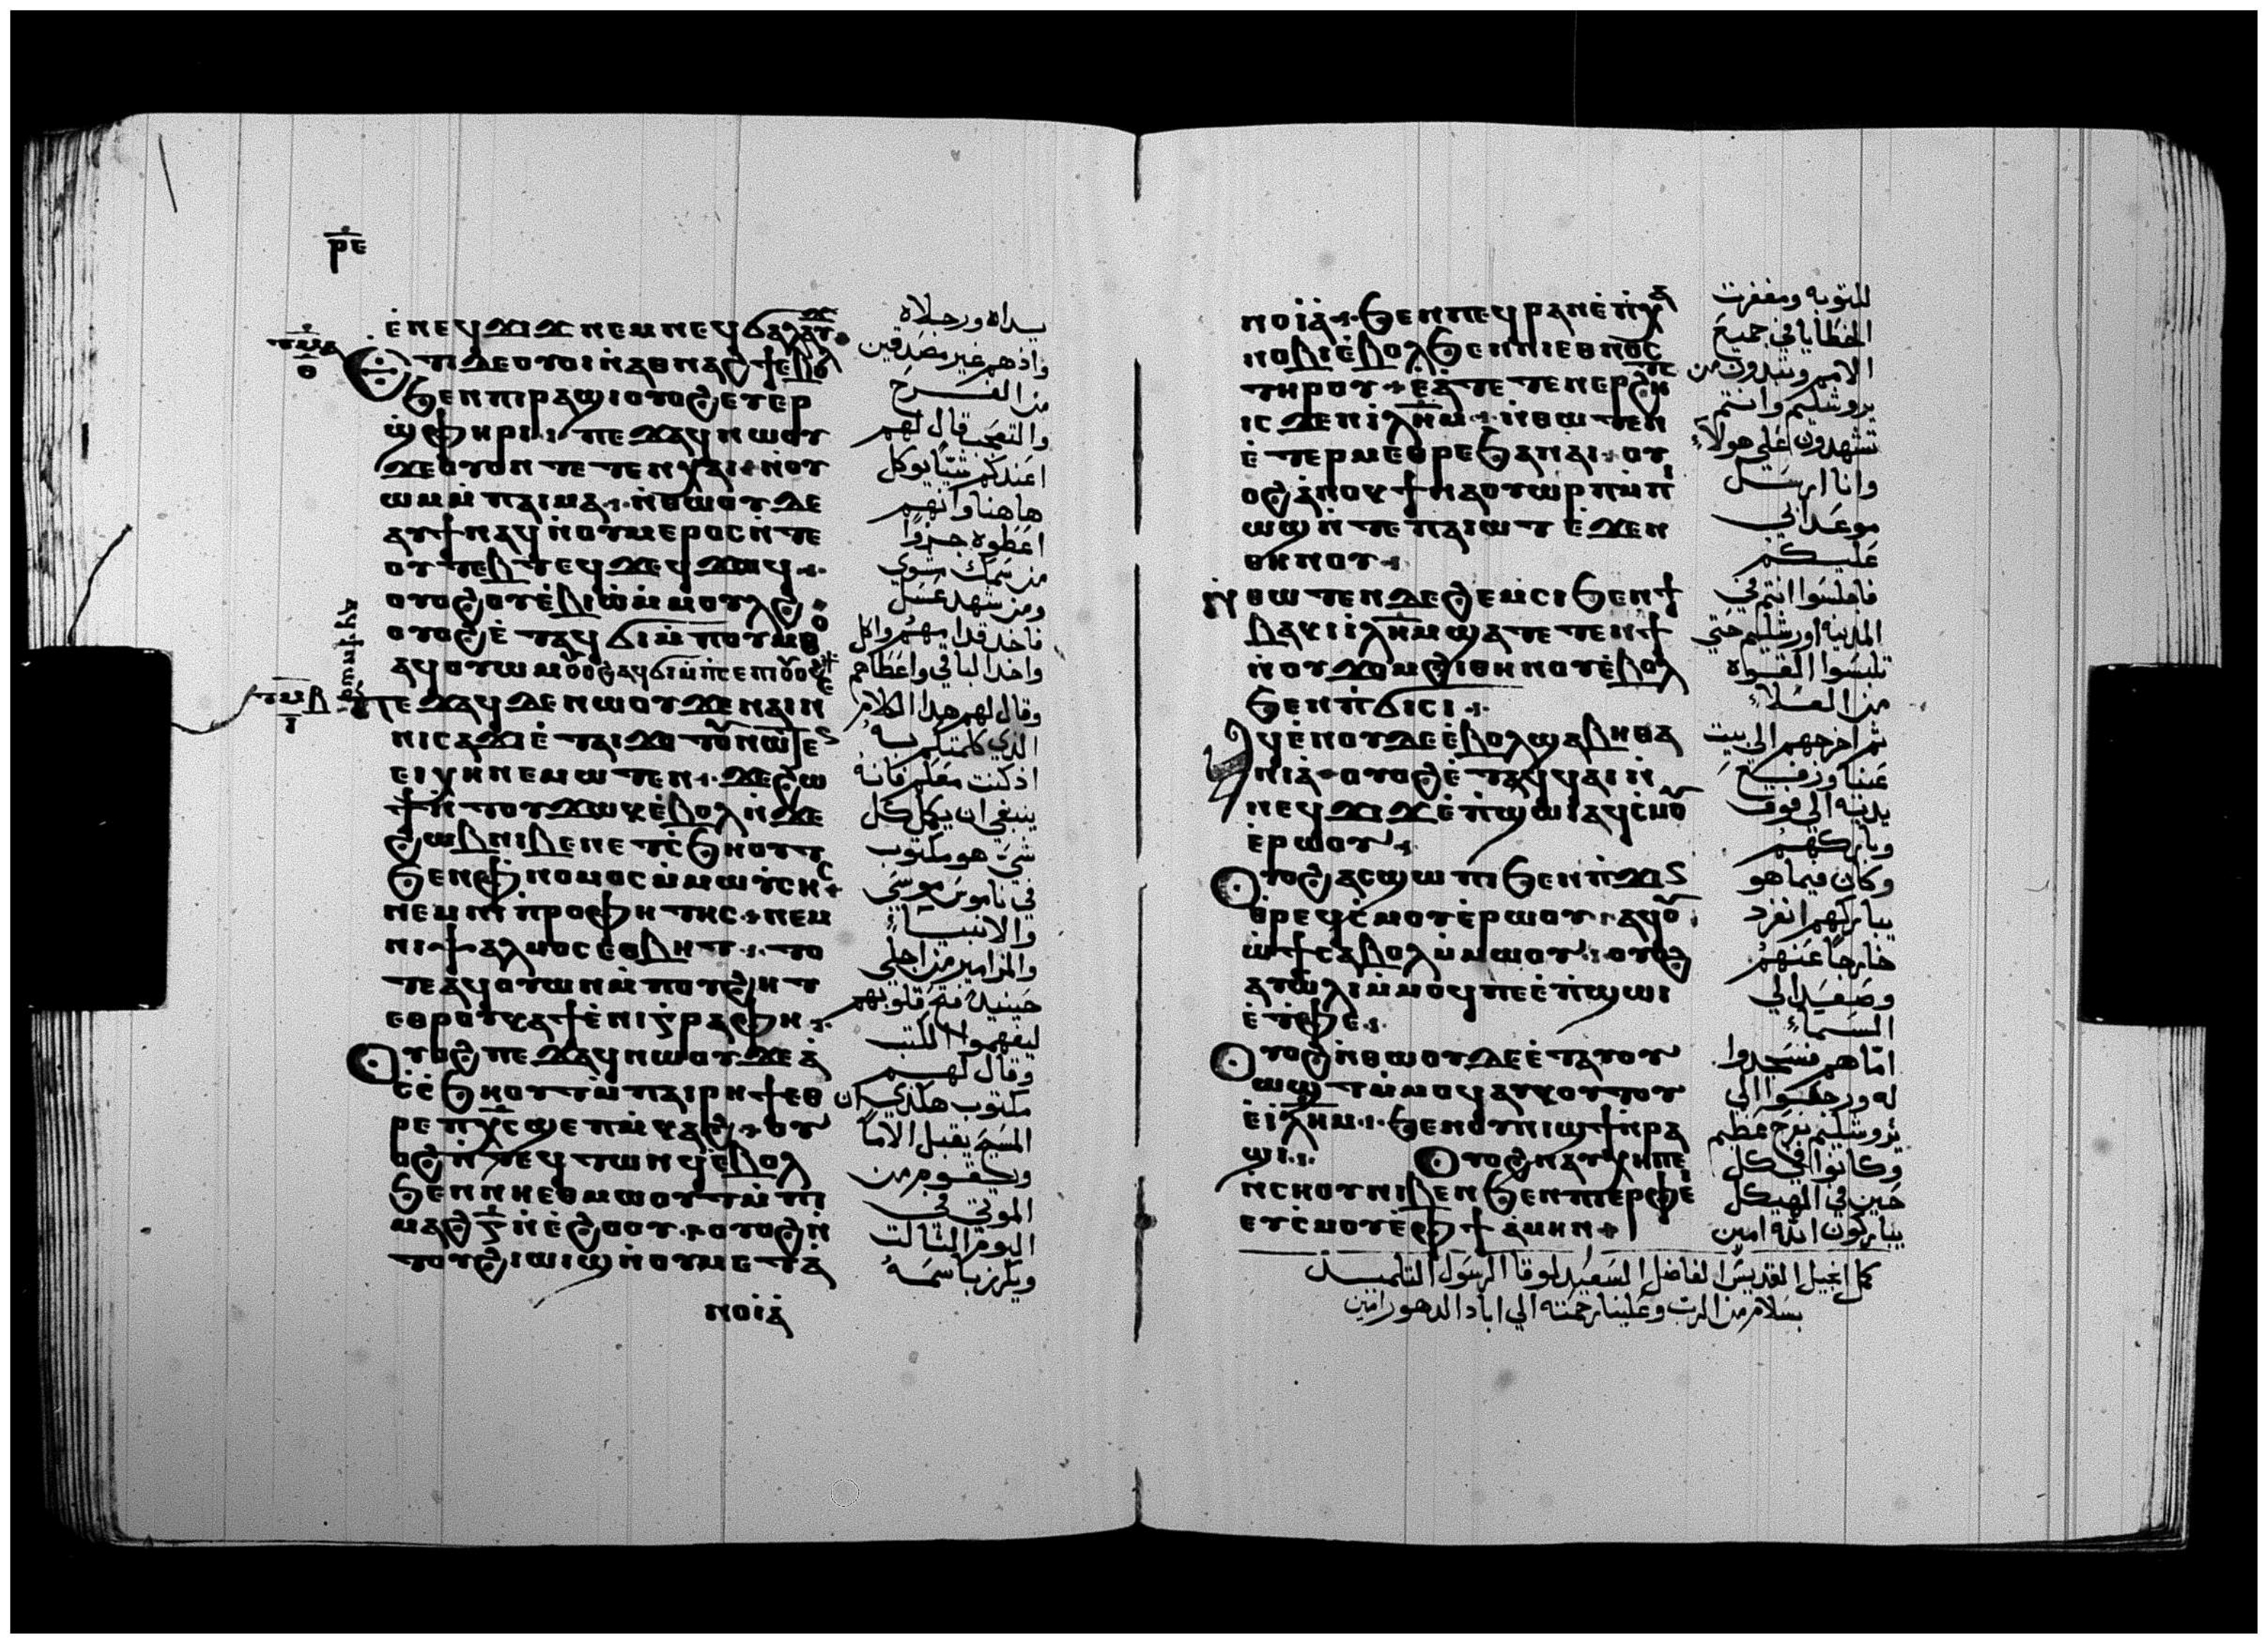 ⲣⲉ
ⲉⲛⲉϥϫⲓϫ ⲛⲉⲙⲛⲉϥϭⲁⲗⲁⲩϫ
ⲧⲙⲁ
ⲑ
ⲉⲧⲓ ⲇⲉ ⲟⲩⲟⲓ ⲛⲁⲑⲛⲁϩϯ ⲉⲃⲟⲗ
ϧⲉⲛⲡⲓⲣⲁϣⲓ ⲟⲩⲟϩ ⲉⲩⲉⲣ
ϣⲫⲏⲣⲓ ⲡⲉϫⲁϥ ⲛⲱⲟⲩ
ϫⲉ ⲟⲩⲟⲛ ⲧⲉⲧⲉⲛⲭⲁⲓ ⲛⲟⲩ
ⲱⲙ ⲙⲡⲁⲓⲙⲁ ⲛⲑⲱⲟⲩ ⲇⲉ
ⲁⲩϯ ⲛⲁϥ ⲛⲟⲩⲙⲉⲣⲟⲥ ⲛⲧⲉ
ⲟⲩⲧⲉⲃⲧ ⲉϥϫⲉϥϫⲱϥ
ⲟⲩⲟϩ ⲟⲩⲉⲃⲓⲱ ⲙⲙⲟⲩⲗϩ
ⲟⲩⲟϩ ⲉⲧⲁϥϭⲓ ⲙⲡⲟⲩⲙⲑⲟ
ⲁϥⲟⲩⲱⲙ ⲟⲩⲟϩ ⲁϥϭⲓ ⲙⲡⲥⲉⲡⲓ ⲟⲩⲟϩ
ⲁϥϯⲛⲱⲟⲩ
ⲧⲙⲃ
ⲓ
ⲡⲉϫⲁϥ ⲇⲉ ⲛⲱⲟⲩ ϫⲉ ⲛⲁⲓ ⲛ
ⲛⲓⲥⲁϫⲓ ⲉⲧⲁⲓϫⲟⲧⲟⲩ ⲛⲱⲧⲉⲛ
ⲉⲓⲭⲏ ⲛⲉⲙⲱⲧⲉⲛ ϫⲉ ϩⲱ
ϯ ⲛⲧⲟⲩϫⲱⲕ ⲉⲃⲟⲗ ⲛϫⲉ
ϩⲱⲃ ⲛⲓⲃⲉⲛ ⲉⲧⲥϧⲏⲟⲩⲧ
ϧⲉⲛⲫⲛⲟⲙⲟⲥ ⲙⲙⲱⲩⲥⲏⲥ
ⲛⲉⲙ ⲛⲓⲡⲣⲟⲫⲏⲧⲏⲥ ⲛⲉⲙ
ⲛⲓⲯⲁⲗⲙⲟⲥ ⲉⲑⲃⲏⲧ ⲧⲟ
ⲧⲉ ⲁϥⲟⲩⲱⲛ ⲙⲡⲟⲩϩⲏⲧ
ⲉⲑⲣⲟⲩⲕⲁϯ ⲉⲛⲓⲅⲣⲁⲫⲏ
ⲟⲩⲟϩ ⲡⲉϫⲁϥ ⲛⲱⲟⲩ ϫⲉ ⲁ
ⲥⲥϧⲏⲟⲩⲧ ⲙⲡⲁⲓⲣⲏϯ ⲉⲑ
ⲣⲉ ⲡⲭⲥ ϣⲉⲡ ⲙⲕⲁϩ ⲟⲩ
ⲟϩ ⲛⲧⲉϥⲧⲱⲛϥ ⲉⲃⲟⲗ
ϧⲉⲛⲛⲏⲉⲑⲙⲱⲟⲩⲧ ⲙⲡⲓ
ⲙⲁϩⲅ ⲛⲉϩⲟⲟⲩ ⲟⲩⲟϩ ⲛ
ⲧⲟⲩϩⲓⲱⲓϣ ⲛⲟⲩⲙⲉⲧⲁ
ⲛⲟⲓⲁ
يداه ورجلاه
واذهم غير مصدقين
من الفرح
والتعجب قال لهم
اعندكم شيًا يوكل
هاهنا وانهم
اعطوه جزوا
من سمك شوي
ومن شهد عسل
فاخد قدامهم واكل
واخد الباقي واعطاهم
وقال لهم هدا الكلام
الذي كلمتكم به
اذ كنت معكم فانه
ينبغي ان يكمل كل
شي هو مكتوب
في ناموس موسي
والانبياء
والمزامير من اجلي
حينيد فتح قلوبهم
ليفهموا الكتب
وقال لهم
مكتوب هكذي كان
المسيح يقبل الاما
ويقوم من
الموتي في
اليوم التالت
ويكرز باسمه
ⲛⲟⲓⲁ ϧⲉⲛⲡⲉϥⲣⲁⲛ ⲉⲡⲭⲁ
ⲛⲟⲃⲓ ⲉⲃⲟⲗ ϧⲉⲛⲛⲓⲉⲑⲛⲟⲥ
ⲧⲏⲣⲟⲩ ⲉⲁⲧⲉⲧⲉⲛⲉⲣϩⲏⲧ
ⲓⲥϫⲉⲛ ⲓⲗⲏⲙ ⲛⲑⲱⲧⲉⲛ
ⲉⲧⲉⲣⲙⲉⲑⲣⲉ ϧⲁⲛⲁⲓ ⲟⲩ
ⲟϩ ⲁⲛⲟⲕ ϯⲛⲁⲟⲩⲱⲣⲡ ⲙⲡⲓ
ⲱϣ ⲛⲧⲉ ⲡⲁⲓⲱⲧ ⲉϫⲉⲛ
ⲑⲏⲛⲟⲩ
ⲛⲑⲱⲧⲉⲛ ⲇⲉ ϩⲉⲙⲥⲓ ϧⲉⲛϯ
ⲃⲁⲕⲓ ⲓⲗⲏⲙ ϣⲁⲧⲉⲧⲉⲛϯ
ⲛⲟⲩϫⲟⲙ ϩⲓⲑⲏⲛⲟⲩ ⲉⲃⲟⲗ
ϧⲉⲛⲡϭⲓⲥⲓ
ⲁϥⲉⲛⲟⲩ ⲇⲉ ⲉⲃⲟⲗ ϣⲁ ⲃⲏⲑⲁ
ⲛⲓⲁ ⲟⲩⲟϩ ⲉⲧⲁϥϥⲁⲓ ⲛ
ⲛⲉϥϫⲓϫ ⲉⲡϣⲱⲓ ⲁϥⲥⲙⲟⲩ
ⲉⲣⲱⲟⲩ
ⲟⲩⲟϩ ⲁⲥϣⲱⲡⲓ ϧⲉⲛⲡϫⲓⲛ
ⲑⲣⲉϥⲥⲙⲟⲩ ⲉⲣⲱⲟⲩ ⲁϥⲟⲩ
ⲱϯ ⲥⲁⲃⲟⲗ ⲙⲙⲱⲟⲩ ⲟⲩⲟϩ
ⲁⲩⲱⲗⲓ ⲙⲙⲟϥ ⲡⲉ ⲉⲡϣⲱⲓ
ⲉⲧⲫⲉ
ⲟⲩⲟϩ ⲛⲑⲱⲟⲩ ⲇⲉ ⲉⲧⲁⲩⲟⲩ
ⲱϣⲧ ⲙⲙⲟϥ ⲁⲩⲕⲟⲧⲟⲩ
ⲉⲓⲗⲏⲙ ϧⲉⲛⲟⲩⲛⲓϣϯ ⲛⲣⲁ
ϣⲓ ⲟⲩⲟϩ ⲛⲁⲩⲭⲏ ⲡⲉ
ⲛⲥⲏⲟⲩ ⲛⲓⲃⲉⲛ ϧⲉⲛⲡⲓⲉⲣⲫⲉⲓ
ⲉⲩⲥⲙⲟⲩ ⲉⲫϯ ⲁⲙⲏⲛ
للتوبه ومغفرت
الخطايا في جميع
الامم وتبدون من
يروشليم وانتم
تشهدون علي هولاء
وانا ارسل
موعد ابي
عليكم
فاجلسوا انتم في
المدينه اورشليم حتي
تلبسوا القوه
من العلاء
ثم اخرجهم الي بيت
عنيا ورفع
يديه الي فوق
وباركهم
وكان فيما هو
يباركهم انفرد
خارجًا عنهم
وصعد الي
السماء
اما هم فسجدوا
له ورجعوا الي
يروشليم بفرح عظيم
وكانوا في كل
حين في الهيكل
يباركون الله امين
كمل انجيل القديس الفاضل السعيد لوقا الرسول التلميد
بسلام من الرب وعلينا رحمته الي اباد الدهور امين